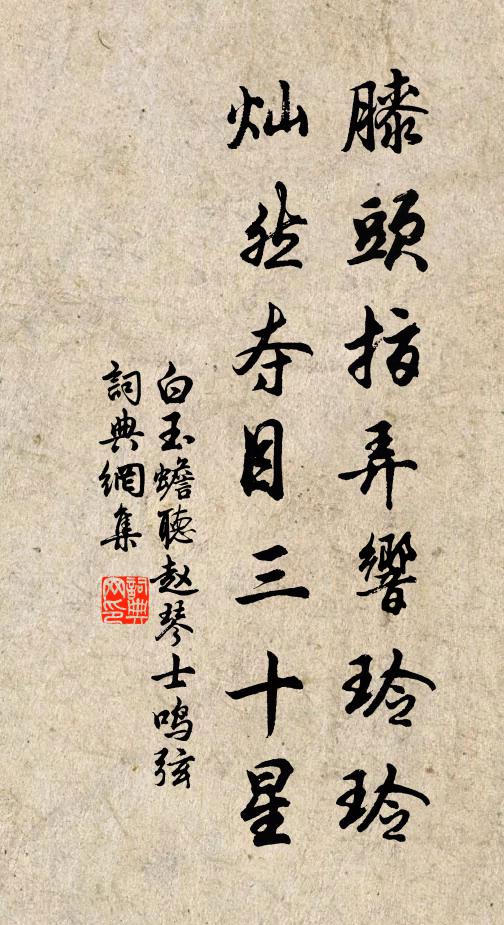 膝頭指弄響玲玲
灿然夺目三十星
白玉蟾聽赵琴士鳴弦
詞典網集
詞典
网印